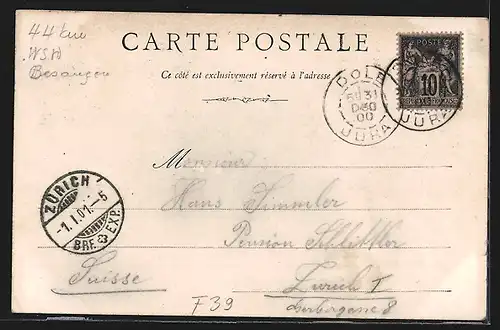 44 km
WSW
Besançon
CARTE POSTALE
Ce côté est exclusivement réservé à l'adresse
DOLE
31
DEC
00
JURA
POSTE
10
JURA
Monsieur
Hans Simmler
Pension Schlittler
Zurich I
Gerbergasse 8
Suisse
ZÜRICH
-1.I.01.-5
BRF. EXP.
F39